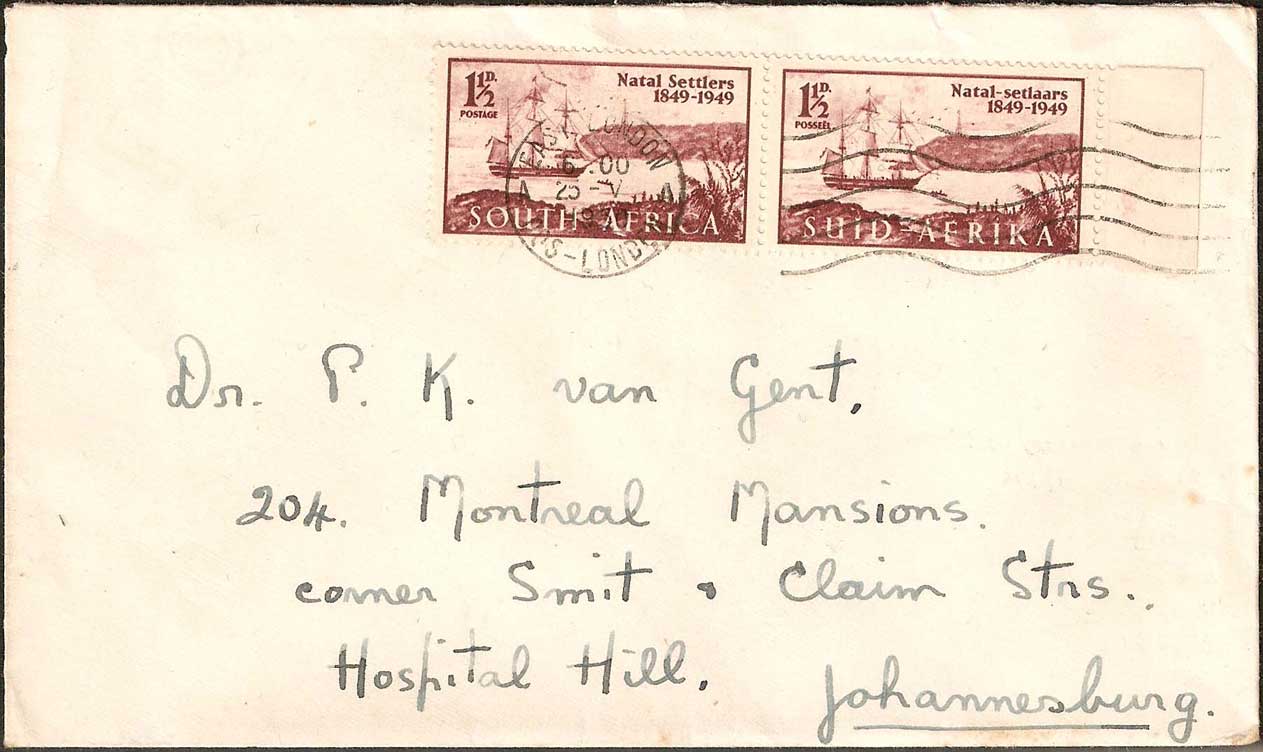 1½D.
POSTAGE
Natal Settlers
1849-1949
SOUTH AFRICA
1½D.
POSSEËL
Natal-setlaars
1849-1949
SUID-AFRIKA
EAST LONDON
6 .00
25 -V
A A
OOS-LONDEN
Dr. P. K. van Gent,
204. Montreal Mansions.
corner Smit & Claim Strs.
Hospital Hill.
Johannesburg.